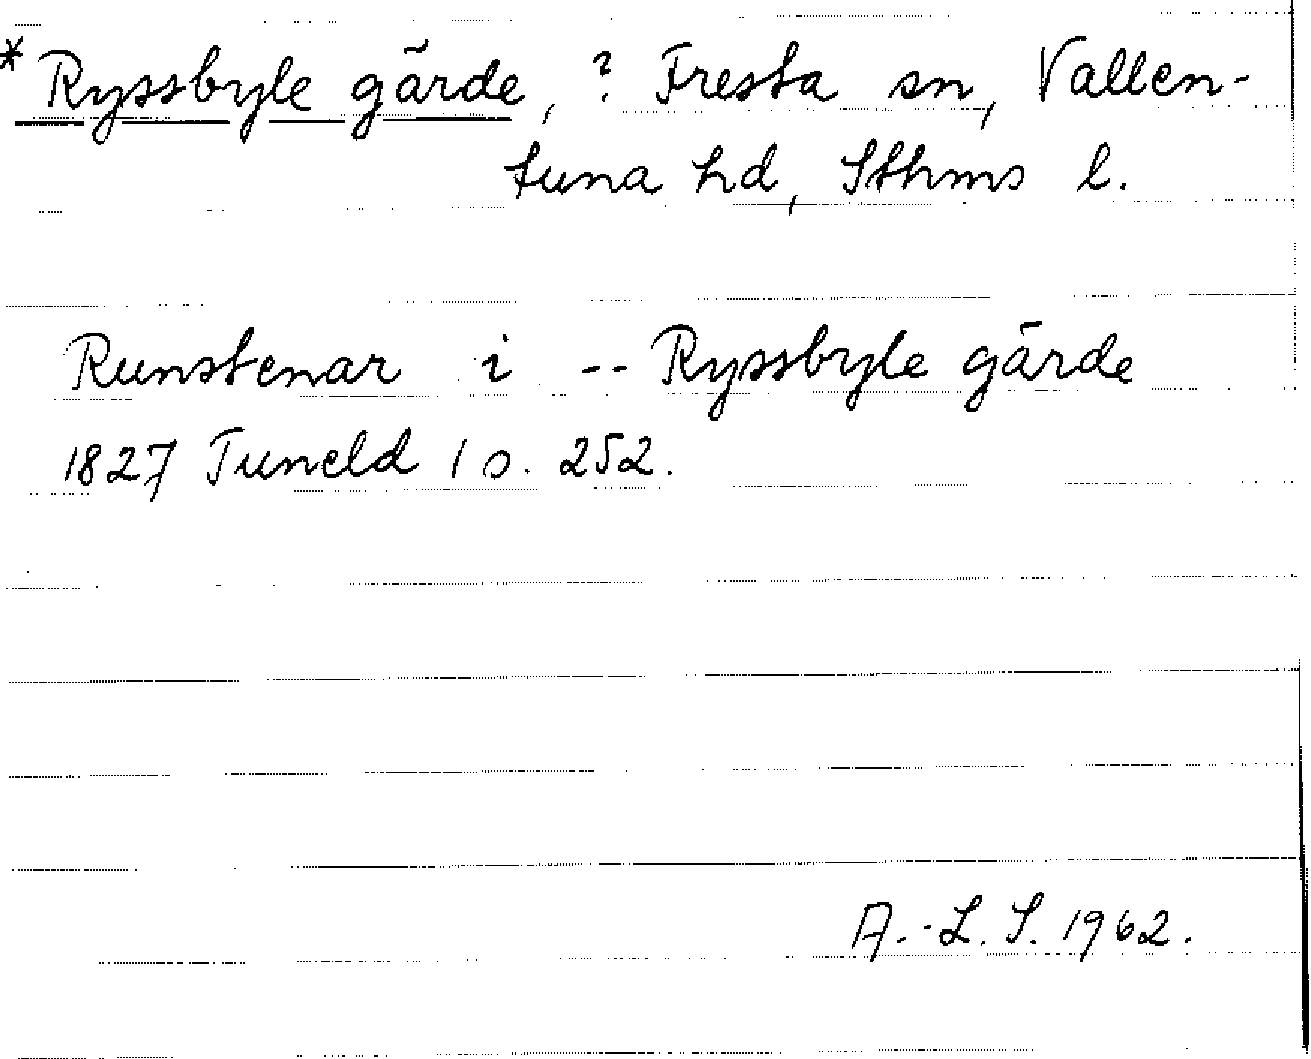 * Ryssbyle gärde, ? Fresta sn, Vallen-
tuna hd, Sthms l.
Runstenar i -- Ryssbyle gärde
1827 Tuneld 1 s. 252.
A.-L. S. 1962.